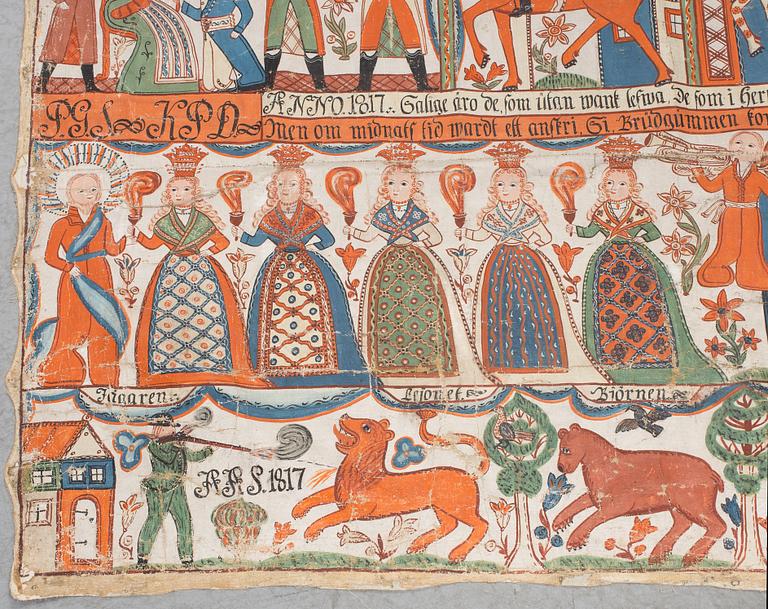 ANNO. 1817. Salige äro de, som utan want lefwa. De som i Herr
P.G.S. K.P.D
Men om midnats tid wardt ett anskri. Si. Brudgummen kom
Jägaren. Lejonet. Björnen
A.A.S. 1817